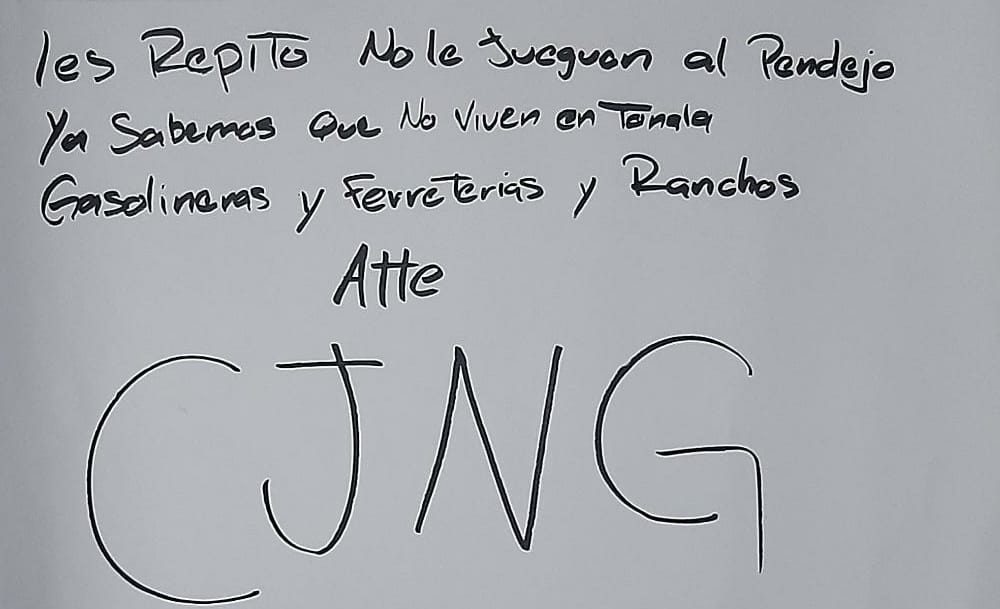 les Repito No le Jueguen al Pendejo
Ya Sabemos Que No Viven en Tonala
Gasolineras y Ferreterias y Ranchos
Atte
CJNG